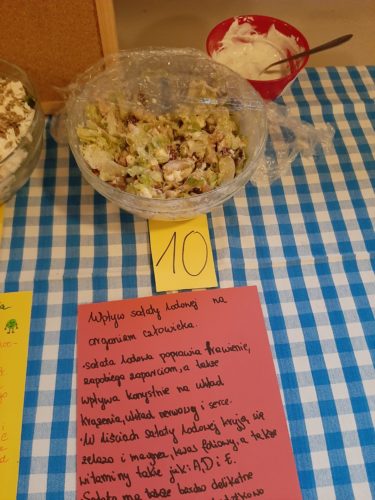 10
Wpływ sałaty lodowej na
organizm człowieka.
• sałata lodowa poprawia trawienie,
zapobiega zaparciom, a także
wpływa korzystnie na układ
krążenia, układ nerwowy i serce.
• W liściach sałaty lodowej kryją się
żelazo i magnez, kwas foliowy, a także
witaminy takie jak: A, D i E.
Sałata ma także bardzo delikatne